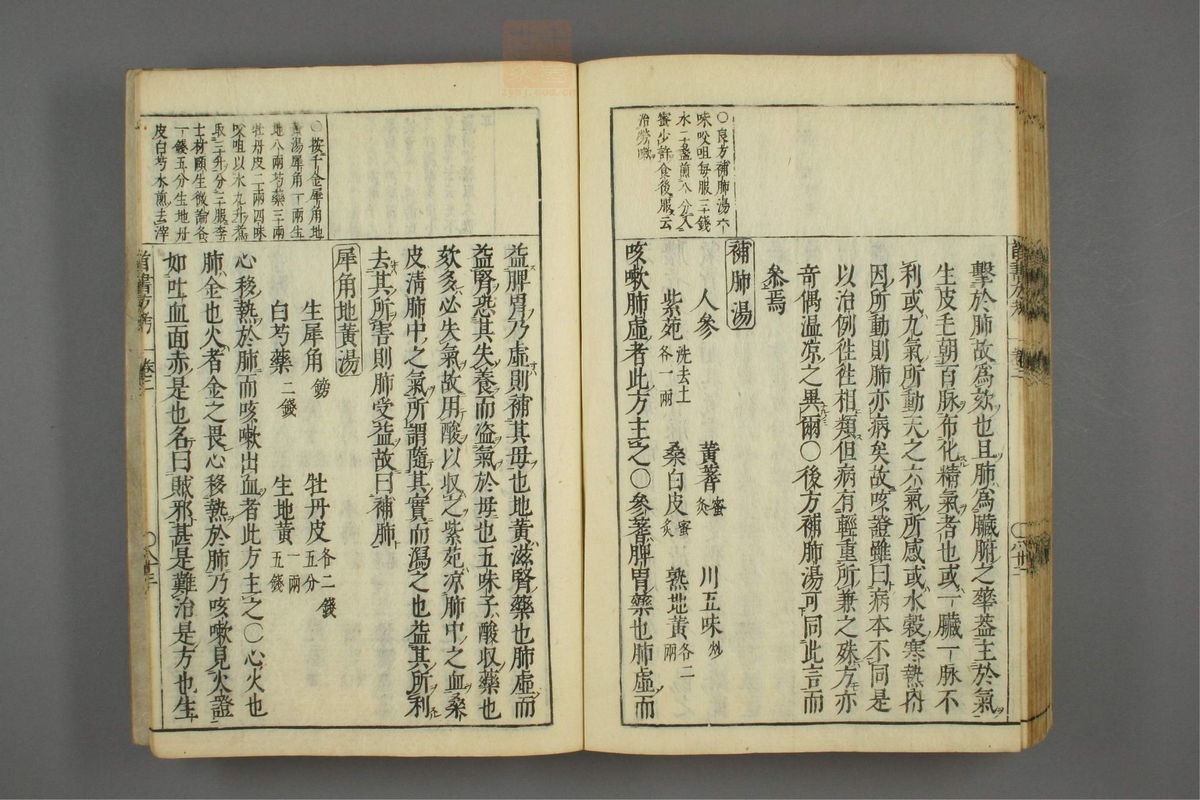 〇良方補肺湯六
味㕮咀每服三錢
水二盞煎八分入
蜜少許食後服云
治勞嗽
擊於肺故爲欬也且肺爲臟腑之華蓋主於氣
生皮毛朝百脉布化精氣者也或一臟一脉不
利或九氣所動天之六氣所感或水穀寒熱內
因所動則肺亦病矣故咳證雖曰病本不同是
以治例徃徃相類但病有輕重所兼之殊方亦
奇偶温凉之異爾〇後方補肺湯可同此言而
叅焉
補肺湯
人參 黃蓍蜜炙 川五味炒
紫苑洗去土各一兩 桑白皮蜜炙 熟地黃各二兩
咳嗽肺虛者此方主之〇參蓍脾胃藥也肺虛而
益脾胃乃虛則補其母也地黃滋腎藥也肺虛而
益腎恐其失養而盗氣於母也五味子酸収藥也
欬多必失氣故用酸以収之紫苑凉肺中之血桑
皮清肺中之氣所謂隨其實而瀉之也益其所利
去其所害則肺受益故曰補肺
犀角地黃湯
生犀角鎊 牡丹皮各二錢五分
白芍藥二錢 生地黃一兩五錢
心移熱於肺而咳嗽出血者此方主之〇心火也
肺金也火者金之畏心移熱於肺乃咳嗽見火證
如吐血面赤是也名曰賊邪甚是難治是方也生
〇按千金犀角地
黃湯犀角一兩生
地八兩芍藥三兩
牡丹皮二兩四味
㕮咀以水九升煮
取三升分三服李
士材頤生微論各
一錢五分生地丹
皮白芍水煎去滓
卷三